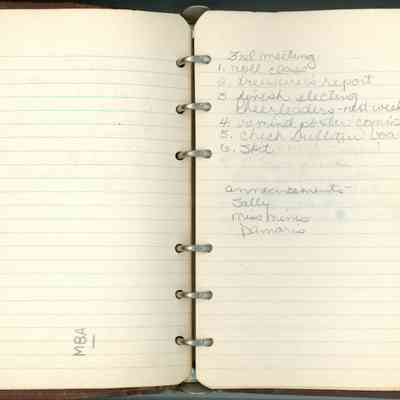 MBA
3rd meeting
1. roll class
2. treasurer's report
3. finish electing
cheerleaders - next week
4. remind poster comis
5. check bulletin boa
6. Skit
announcements -
Sally
Miss Mims
Damaris